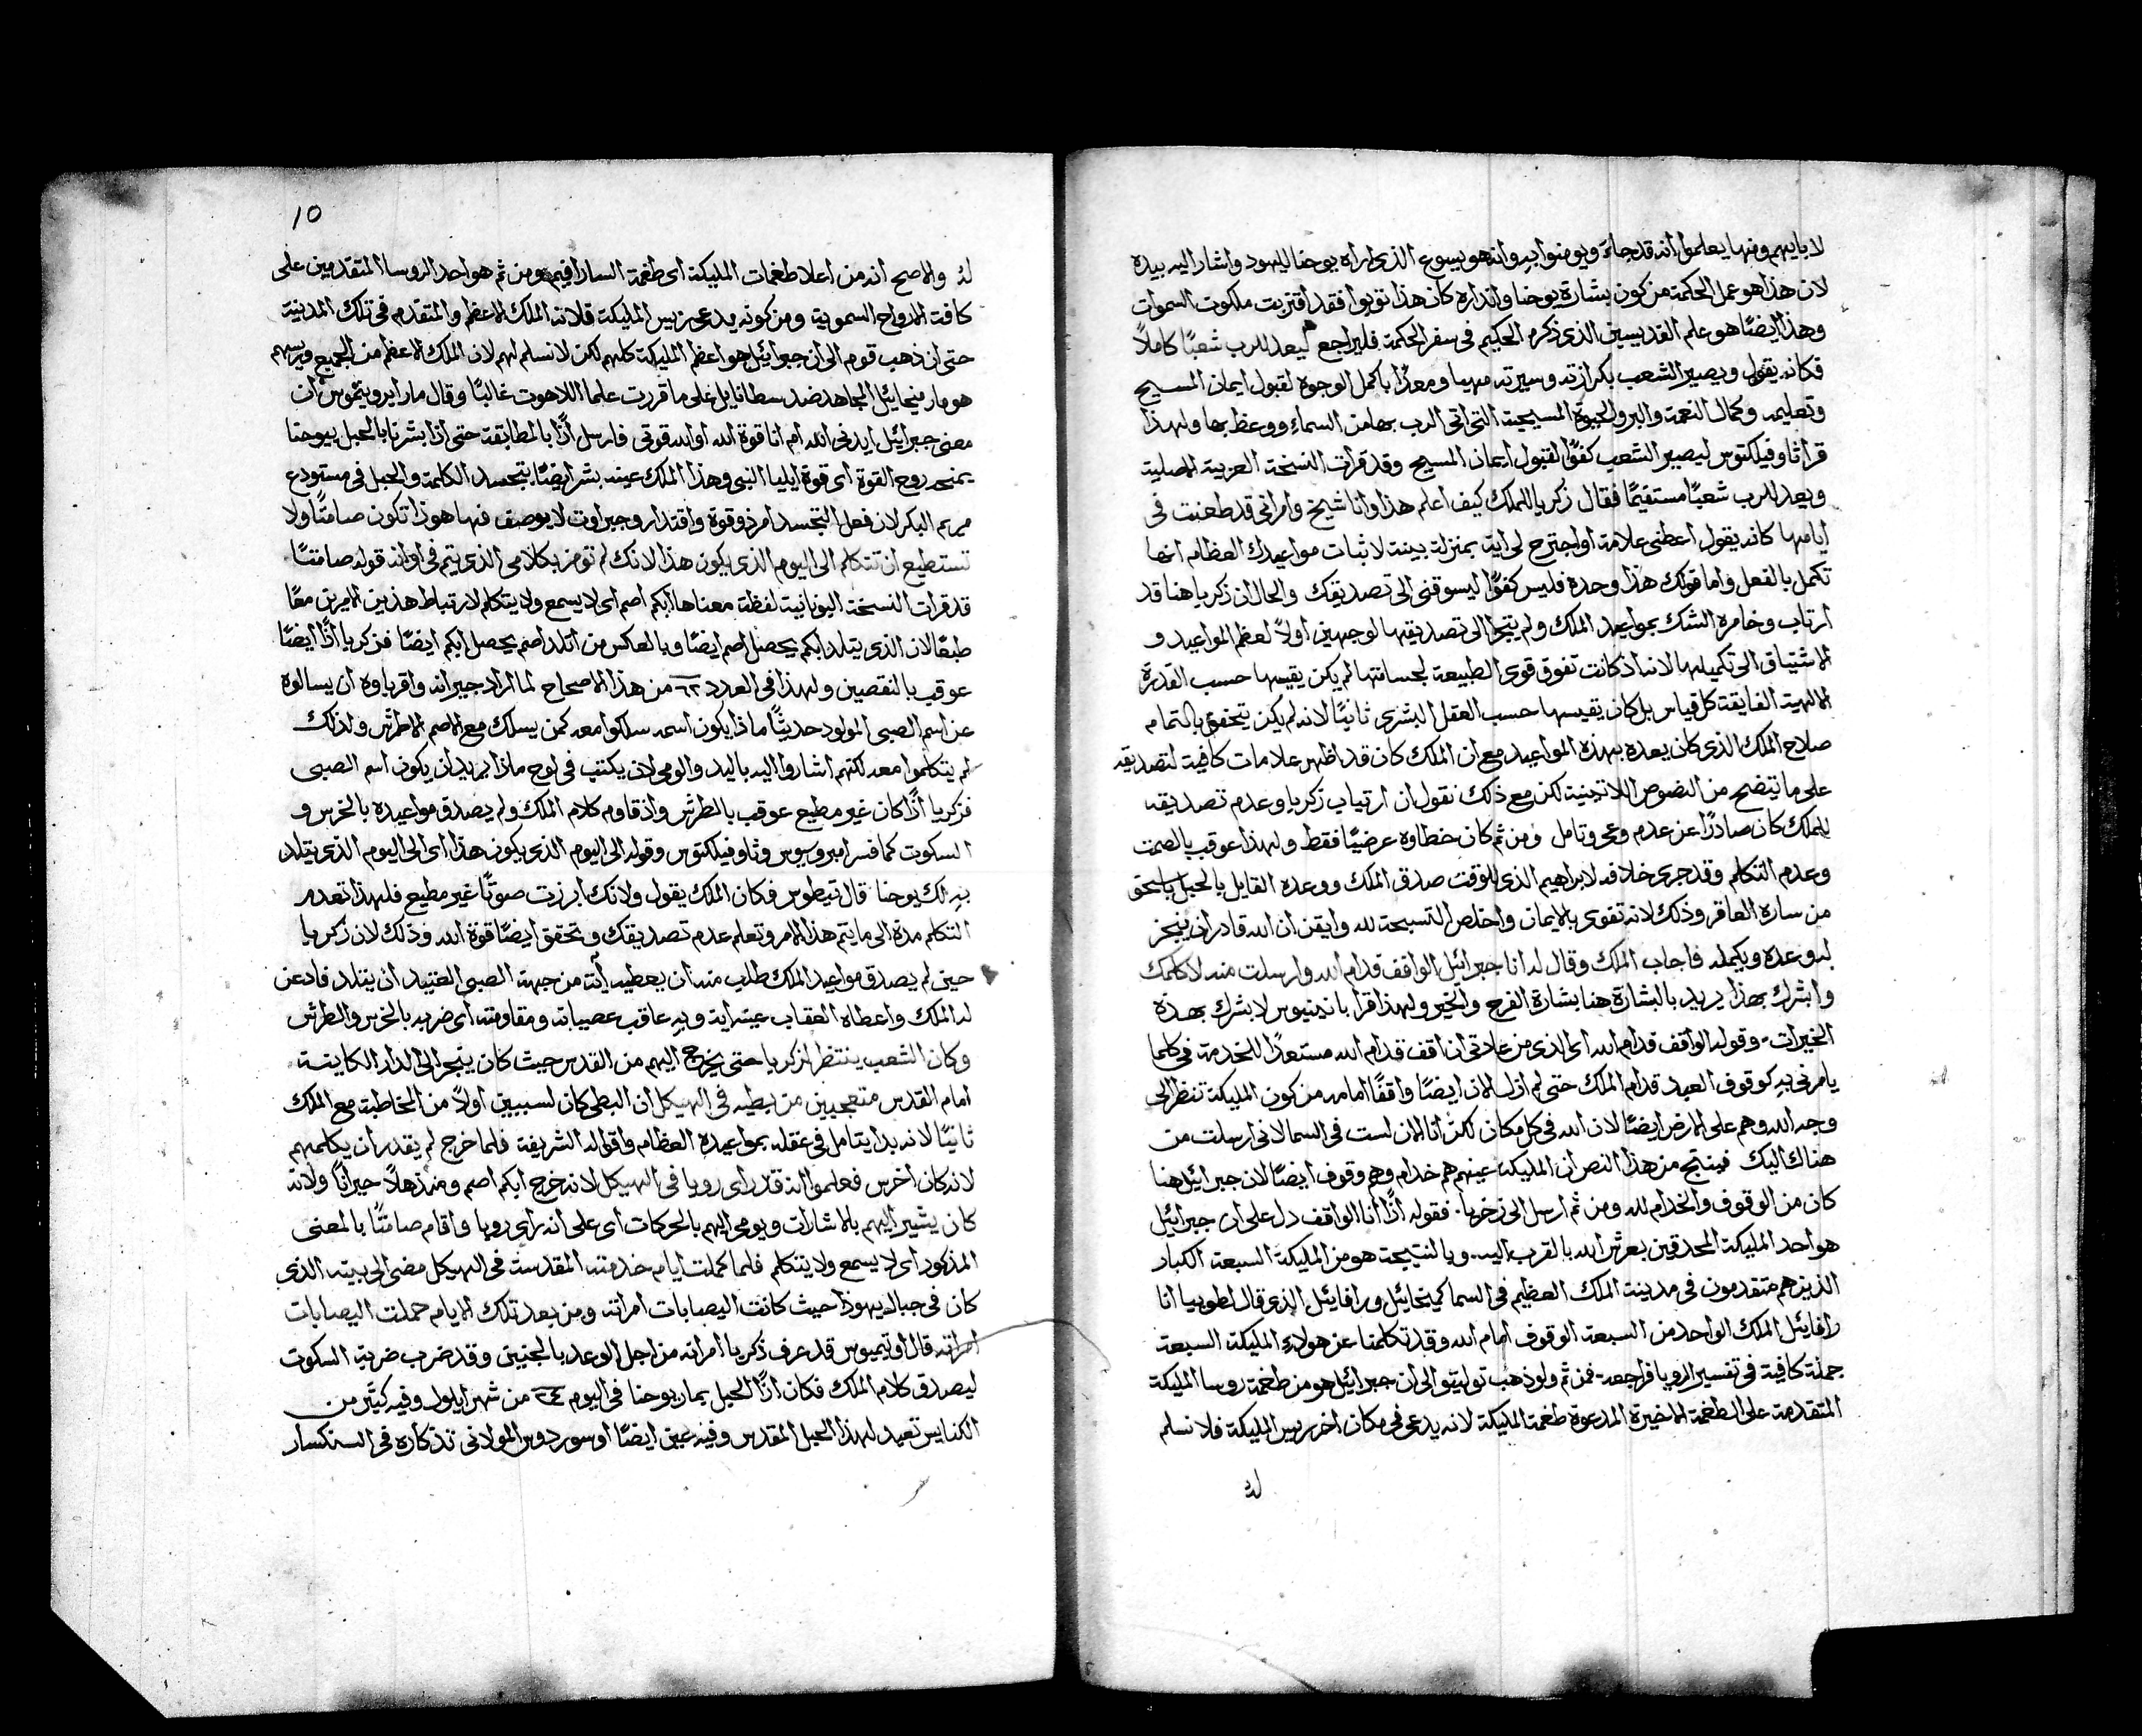 لابايهم ومنها يعلموا انه قد جاء ويومنوا به وانه هو يسوع الذي اراه يوحنا لليهود واشار اليه بيده
لان هذا هو عمل الحكمة من كون بشارة يوحنا وانذاره كان هذا توبوا فقد اقتربت ملكوت السموات
وهذا ايضًا هو علم القديسين الذي ذكره الحكيم في سفر الحكمة فليراجع ليعد للرب شعبًا كاملاً
فكانه يقول ويصير الشعب بكرازته وسيرته مهيا ومعدًا باكمل الوجوه لقبول ايمان المسيح
وتعليمه وكمال النعمة والبر والحيوة المسيحية التي اتى الرب بها من السماء ووعظ بها ولهذا
قرا ثاوفيلكتوس ليصير الشعب كفوًا لقبول ايمان المسيح وقد قرات النسخة العربية الاصلية
ويعد للرب شعبًا مستقيمًا فقال زكريا للملك كيف اعلم هذا وانا شيخ وامراتي قد طعنت في
ايامها كانه يقول اعطني علامة او اجترح لي اية بمنزلة بينة لاثبات مواعيدك العظام انها
تكمل بالفعل واما قولك هذا وحده فليس كفوًا ليسوقني الى تصديقك والحال ان زكريا هنا قد
ارتاب وخامره الشك بمواعيد الملك ولم يتجرا الى تصديقها لوجهين اولاً لعظم المواعيد و
الاشتياق الى تكميلها لانه اذ كانت تفوق قوى الطبيعة لجسامتها لم يكن يقيسها حسب القدرة
الالهية الفايقة كل قياس بل كان يقيسها حسب العقل البشري ثانيًا لانه لم يكن يتحقق بالتمام
صلاح الملك الذي كان يعده بهذه المواعيد مع ان الملك كان قد اظهر علامات كافية لتصديقه
على ما يتضح من النصوص اللاتينية لكن مع ذلك نقول ان ارتياب زكريا وعدم تصديقه
للملك كان صادرًا عن عدم وعي وتامل ومن ثم كان خطاوه عرضيًا فقط ولهذا عوقب بالصمت
وعدم التكلم وقد جرى خلافه لابراهيم الذي للوقت صدق الملك ووعده القايل بالحبل باسحق
من سارة العاقر وذلك لانه تقوى بالايمان واخلص التسبحة لله وايقن ان الله قادر ان ينجز
له وعده ويكمله فاجاب الملك وقال له انا جبرائيل الواقف قدام الله وارسلت منه لاكلمك
وابشرك بهذا يريد بالبشارة هنا بشارة الفرح والخير ولهذا قرا باندنيوس لابشرك بهذه
الخيرات وقوله الواقف قدام الله اي الذي من عادتي ان اقف قدام الله مستعدًا للخدمة في كلما
يامرني به كوقوف العبد قدام الملك حتى لم ازل الان ايضًا واقفًا امامه من كون المليكة تنظر الى
وجه الله وهم على الارض ايضًا لان الله في كل مكان لكن انا الان لست في السما لاني ارسلت من
هناك اليك فينتج من هذا النص ان المليكة عينهم هم خدام وهم وقوف ايضًا لان جبرائيل هنا
كان من الوقوف والخدام لله ومن ثم ارسل الى زخريا فقوله اذًا انا الواقف دل على ان جبرائيل
هو احد المليكة المحدقين بعرش الله بالقرب اليه وبالنتيجة هو من المليكة السبعة الكبار
الذين هم متقدمون في مدينة الملك العظيم في السما كميخائيل ورافائيل الذي قال لطوبيا انا
رافائيل الملك الواحد من السبعة الوقوف امام الله وقد تكلمنا عن هولاء المليكة السبعة
جملة كافية في تفسير الرويا فراجعه فمن ثم ولو ذهب توليتو الى ان جبرائيل هو من طغمة روسا المليكة
المتقدمة على الطغمة الاخيرة المدعوة طغمة المليكة لانه يدعى في مكان اخر ريس المليكة فلا نسلم
له
10
له والاصح انه من اعلا طغمات المليكة اي طغمة السارافيم ومن ثم هو احد الروسا المتقدمين على
كافة الارواح السموية ومن كونه يدعى ريس المليكة فلانه الملك الاعظم والمتقدم في تلك المدينة
حتى ان ذهب قوم الى ان جبرائيل هو اعظم المليكة كلهم لكن لا نسلم لهم لان الملك الاعظم من الجميع وريسهم
هو مار ميخائيل المجاهد ضد سطانايل على ما قررت علما اللاهوت غالبًا وقال مار ايرونيموس ان
معنى جبرائيل ايدني الله ام انا قوة الله او الله قوتي فارسل اذًا بالمطابقة حتى اذا بشرنا بالحبل بيوحنا
يمنحه روح القوة اي قوة ايليا النبي وهذا الملك عينه بشر ايضًا بتجسد الكلمة والحبل في مستودع
مريم البكر لان فعل التجسد امر ذو قوة واقتدار وجبراوت لا يوصف فيها هوذا تكون صامتًا ولا
تستطيع ان تتكلم الى اليوم الذي يكون هذا لانك لم تومن بكلامي الذي يتم في اوانه قوله صامتًا
قد قرات النسخة اليونانية لفظة معناها ابكم اصم اي لا يسمع ولا يتكلم لارتباط هذين الامرين معًا
طبعًا لان الذي يتلد ابكم يحصل اصم ايضًا وبالعكس من اتلد اصم يحصل ابكم ايضًا فزكريا اذًا ايضًا
عوقب بالنقصين ولهذا في العدد ٦٢ من هذا الاصحاح لما اراد جيرانه واقرباوه ان يسالوه
عن اسم الصبي المولود حديثًا ماذا يكون اسمه سلكوا معه كمن يسلك مع الاصم الاطرش ولذلك
لم يتكلموا معه لكنهم اشاروا اليه باليد والومي لان يكتب في لوح ماذا يريد ان يكون اسم الصبي
فزكريا اذًا كان غير مطيع عوقب بالطرش واذ قاوم كلام الملك ولم يصدق مواعيده بالخرس و
السكوت كما فسر امبروسيوس وثاوفيلكتوس وقوله الى اليوم الذي يكون هذا اي الى اليوم الذي يتلد
به لك يوحنا قال تيطوس فكان الملك يقول ولانك ابرزت صوتًا غير مطيع فلهذا تعدم
التكلم مدة الى ما يتم هذا الامر وتعلم عدم تصديقك وتحقق ايضًا قوة الله وذلك لان زكريا
حين لم يصدق مواعيد الملك طلب منه ان يعطيه آية من جهة الصبي العتيد ان يتلد فاذعن
له الملك واعطاه العقاب عينه اية وبه عاقب عصيانه ومقاومته اي ضربه بالخرس والطرش
وكان الشعب ينتظر لزكريا حتى يخرج اليهم من القدس حيث كان يتجرا الى الدار الكاينة
امام القدس متعجبين من بطيه في الهيكل ان البطي كان لسببين اولاً من المخاطبة مع الملك
ثانيًا لانه بدا يتامل في عقله بمواعيده العظام واقواله الشريفة فلما خرج لم يقدر ان يكلمهم
لانه كان اخرس فعلموا انه قد راى رويا في الهيكل لانه خرج ابكم اصم ومنذهلاً حيرانًا ولانه
كان يشير اليهم بالاشارات ويومي اليهم بالحركات اي على انه راى رويا واقام صامتًا بالمعنى
المذكور اي لا يسمع ولا يتكلم فلما كملت ايام خدمته المقدسة في الهيكل مضى الى بيته الذي
كان في جبال يهوذا حيث كانت اليصابات امراته ومن بعد تلك الايام حملت اليصابات
امراته قال اوتيميوس قد عرف زكريا امراته من اجل الوعد بالجنين وقد ضرب ضربة السكوت
ليصدق كلام الملك فكان اذًا الحبل بمار يوحنا في اليوم ٢٤ من شهر ايلول وفيه كثير من
الكنايس تعيد لهذا الحبل المقدس وفيه عين ايضًا اوسوردوس المولاني تذكاره في السنكسار